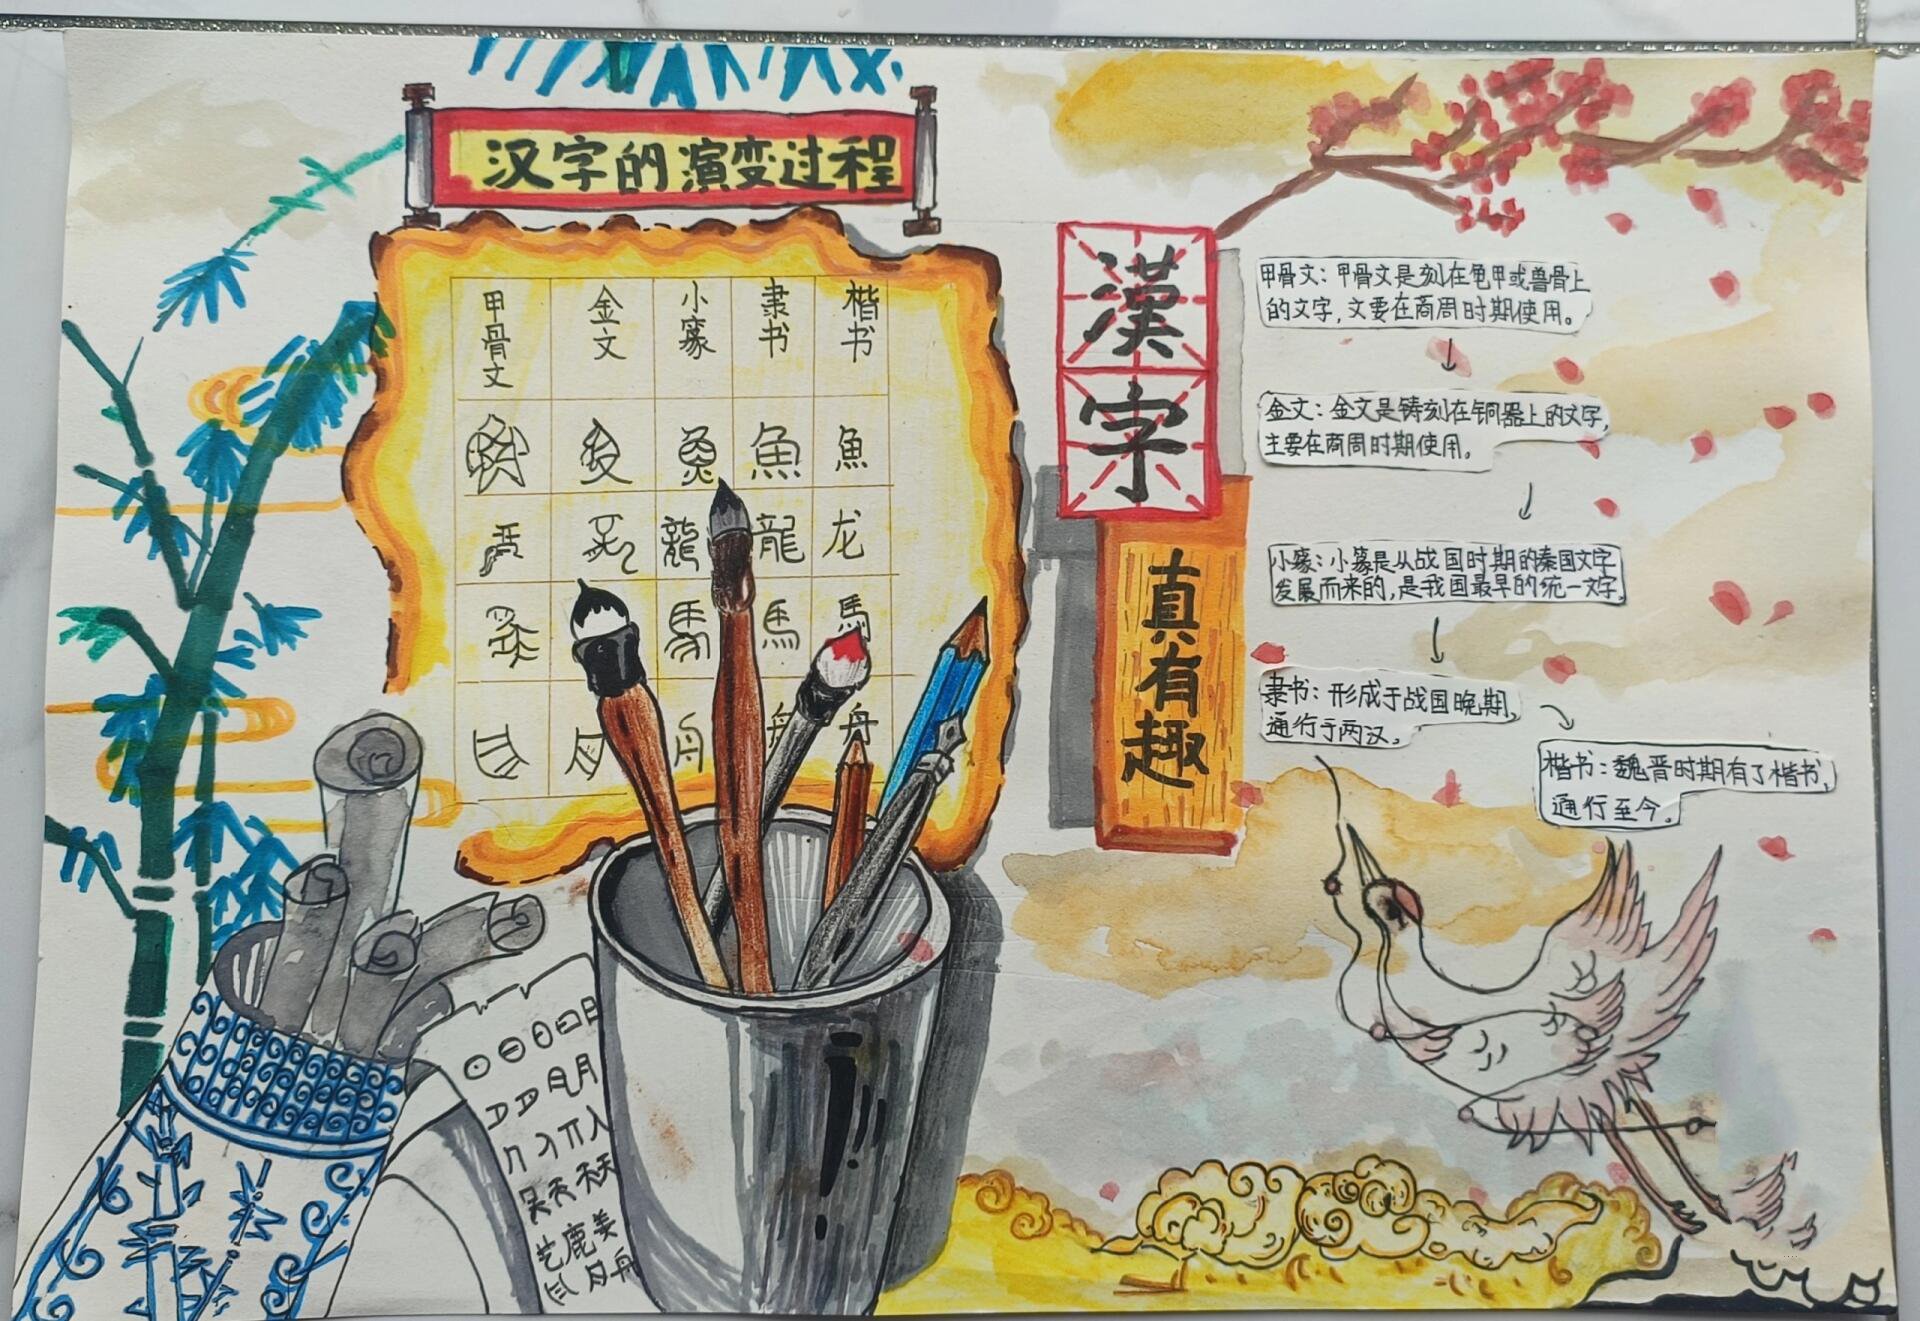 汉字的演变过程
甲骨文 金文 小篆 隶书 楷书
魚 魚
龍 龍 龙
馬 馬 馬
舟 舟 舟
漢字
真有趣
甲骨文：甲骨文是刻在龟甲或兽骨上
的文字，文要在商周时期使用。
金文：金文是铸刻在铜器上的文字，
主要在商周时期使用。
小篆：小篆是从战国时期的秦国文字
发展而来的，是我国最早的统一文字。
隶书：形成于战国晚期，
通行于两汉。
楷书：魏晋时期有了楷书，
通行至今。
月
人
天
艺鹿美
月舟